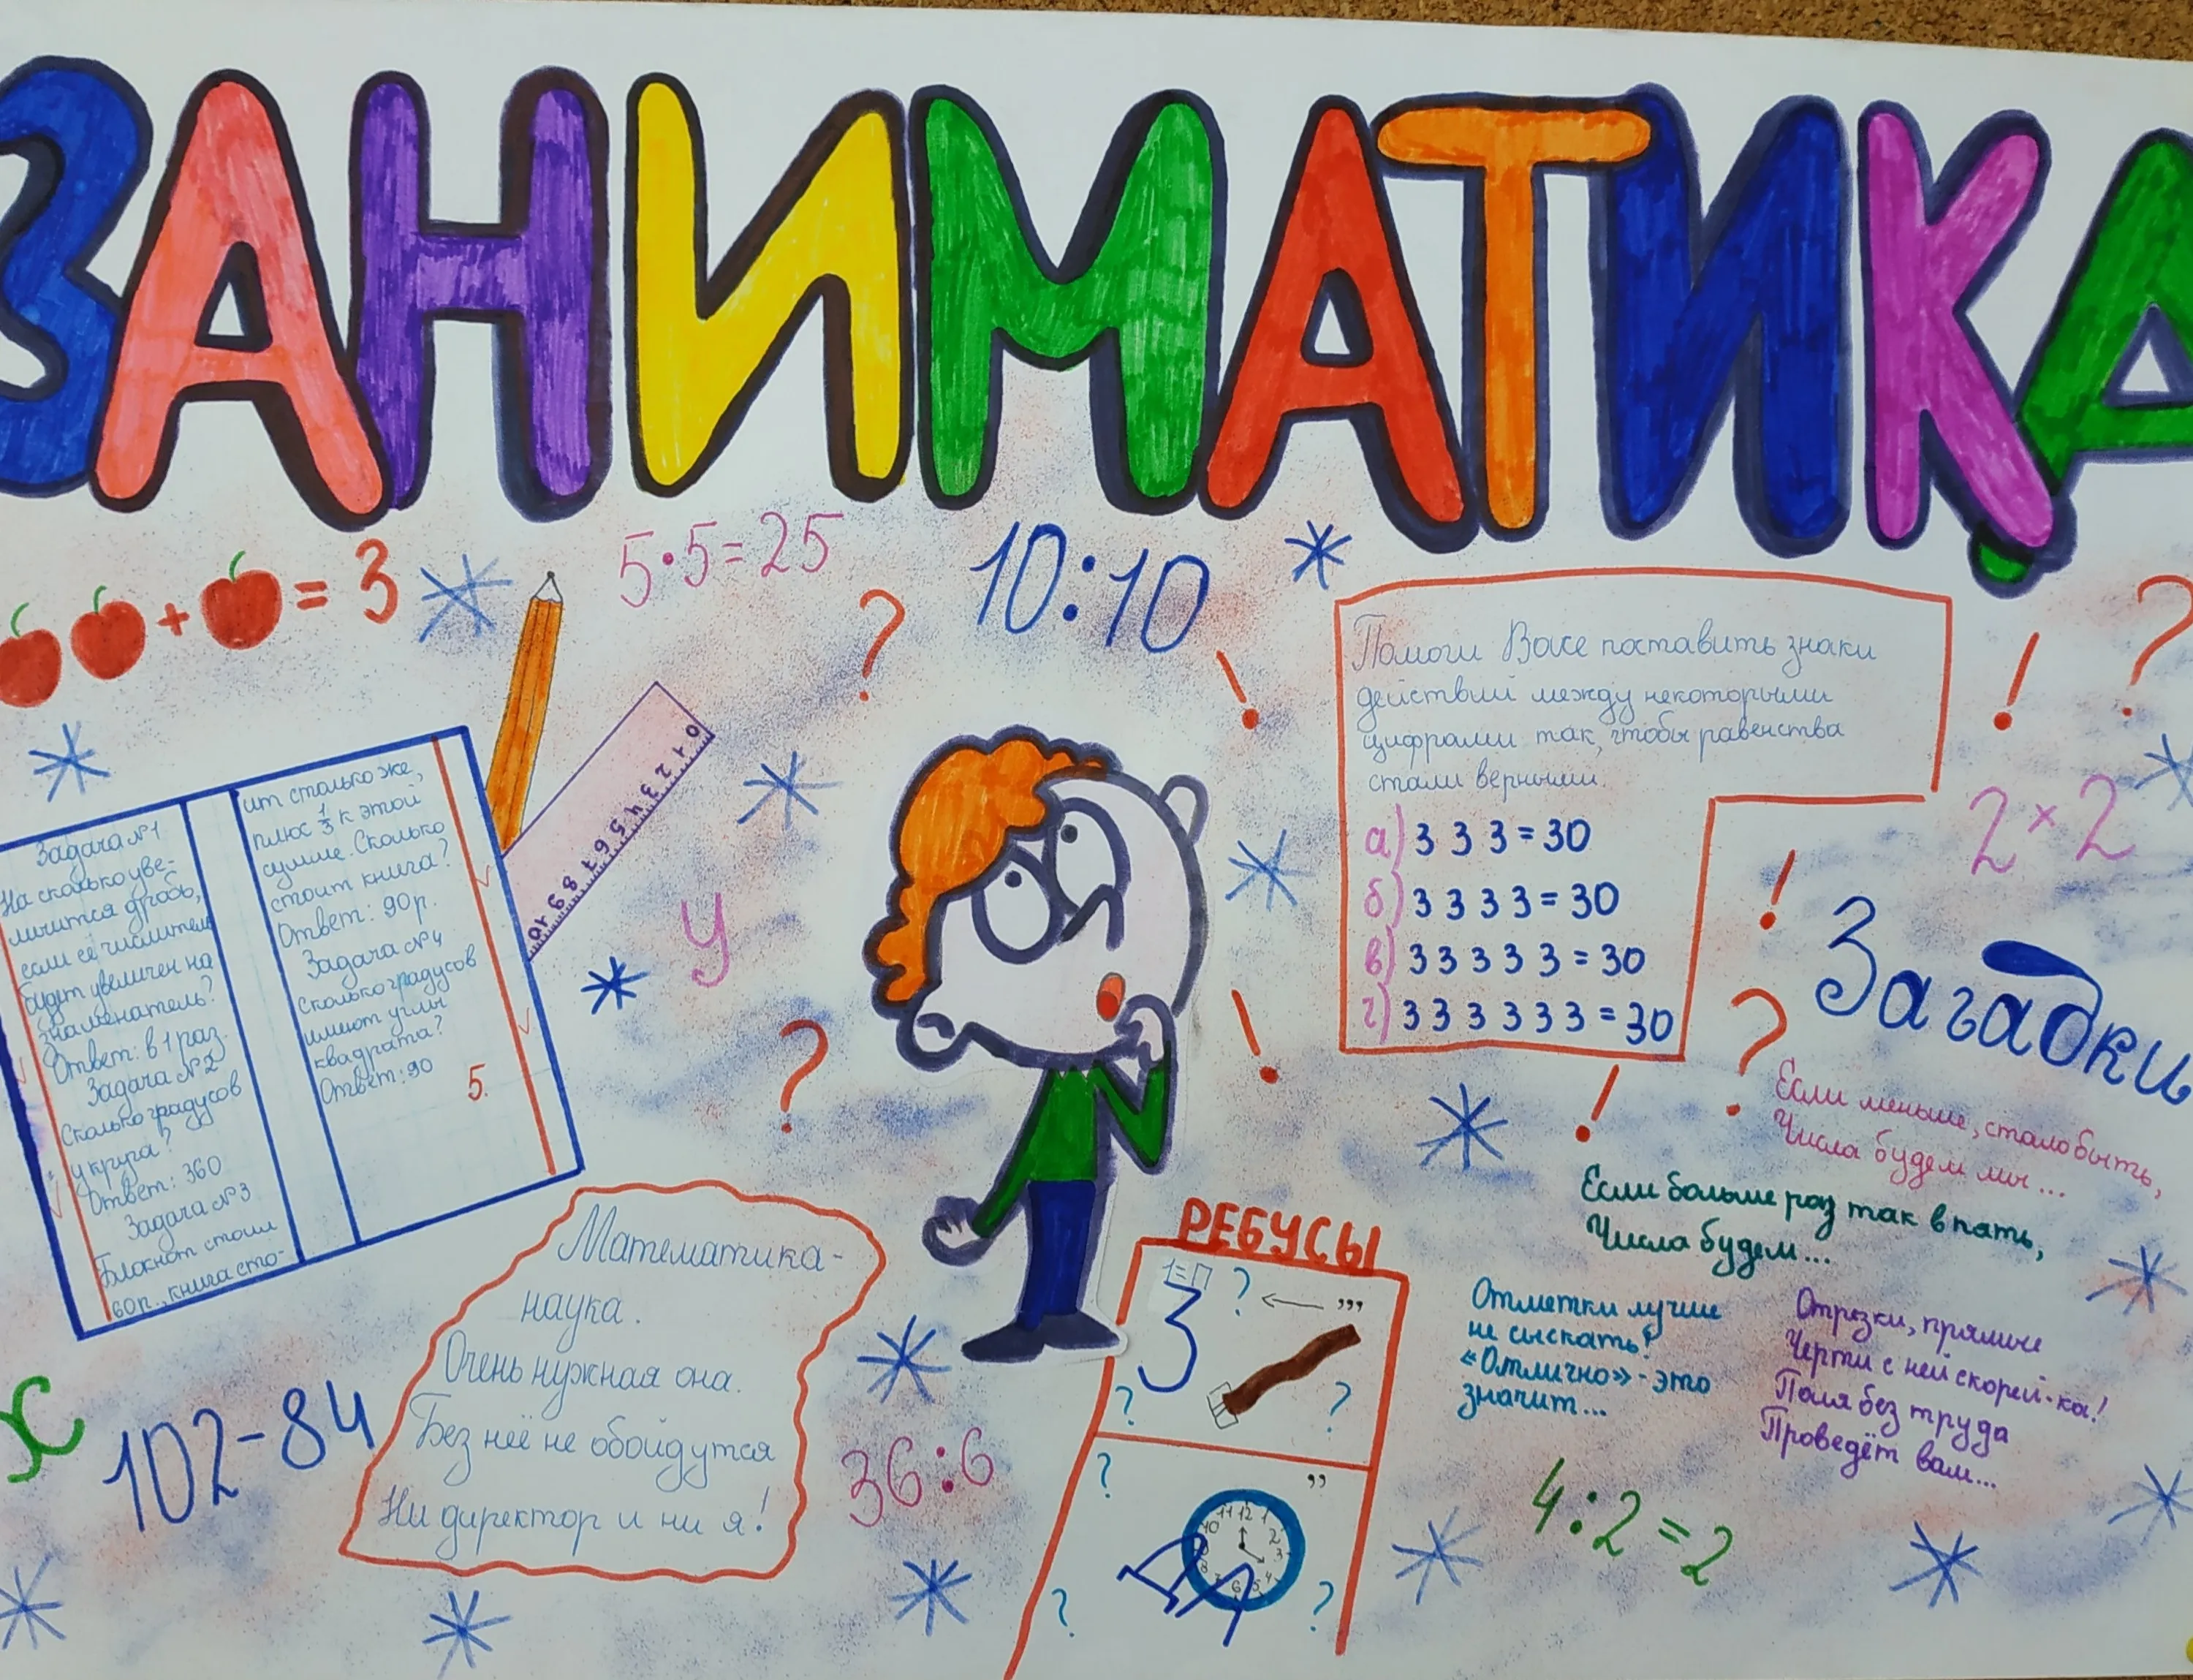 ЗАНИМАТИКА
= 3
+
5·5=25
10:10
?
!
!
?
Помоги Васе поставить знаки
действий между некоторыми
цифрами так, чтобы равенства
стали верными.
а) 3 3 3 = 30
б) 3 3 3 3 = 30
в) 3 3 3 3 3 = 30
г) 3 3 3 3 3 3 = 30
2×2
0 1 2 3 4 5 6 7 8 9 10
У
Задача №1
На сколько уве-
личится дробь,
если её числитель
будет увеличен на
знаменатель?
Ответ: в 1 раз.
Задача №2
Сколько градусов
у круга?
Ответ: 360
Задача №3
Блокнот стоил
60 р., книга сто-
ит столько же,
плюс 1/3 к этой
сумме. Сколько
стоит книга?
Ответ: 90р.
Задача №4
Сколько градусов
имеют углы
квадрата?
Ответ: 90
5.
?
!
!
?
!
Загадки
Если меньше, стало быть,
Числа будем мы...
Если больше раз так в пать,
Числа будем...
Отметки лучше
не сыскать!
«Отлично» - это
значит...
Отрезки, прямые
Черти с ней скорей-ка!
Поля без труда
Проведёт вам...
Математика -
наука.
Очень нужная она.
Без неё не обойдутся
Ни директор и ни я!
х
102-84
36:6
РЕБУСЫ
1=П
? ← ,,,
3
? ?
? ,,
11 12 1
10 2
9 3
8 4
7 6 5
? ?
4:2=2